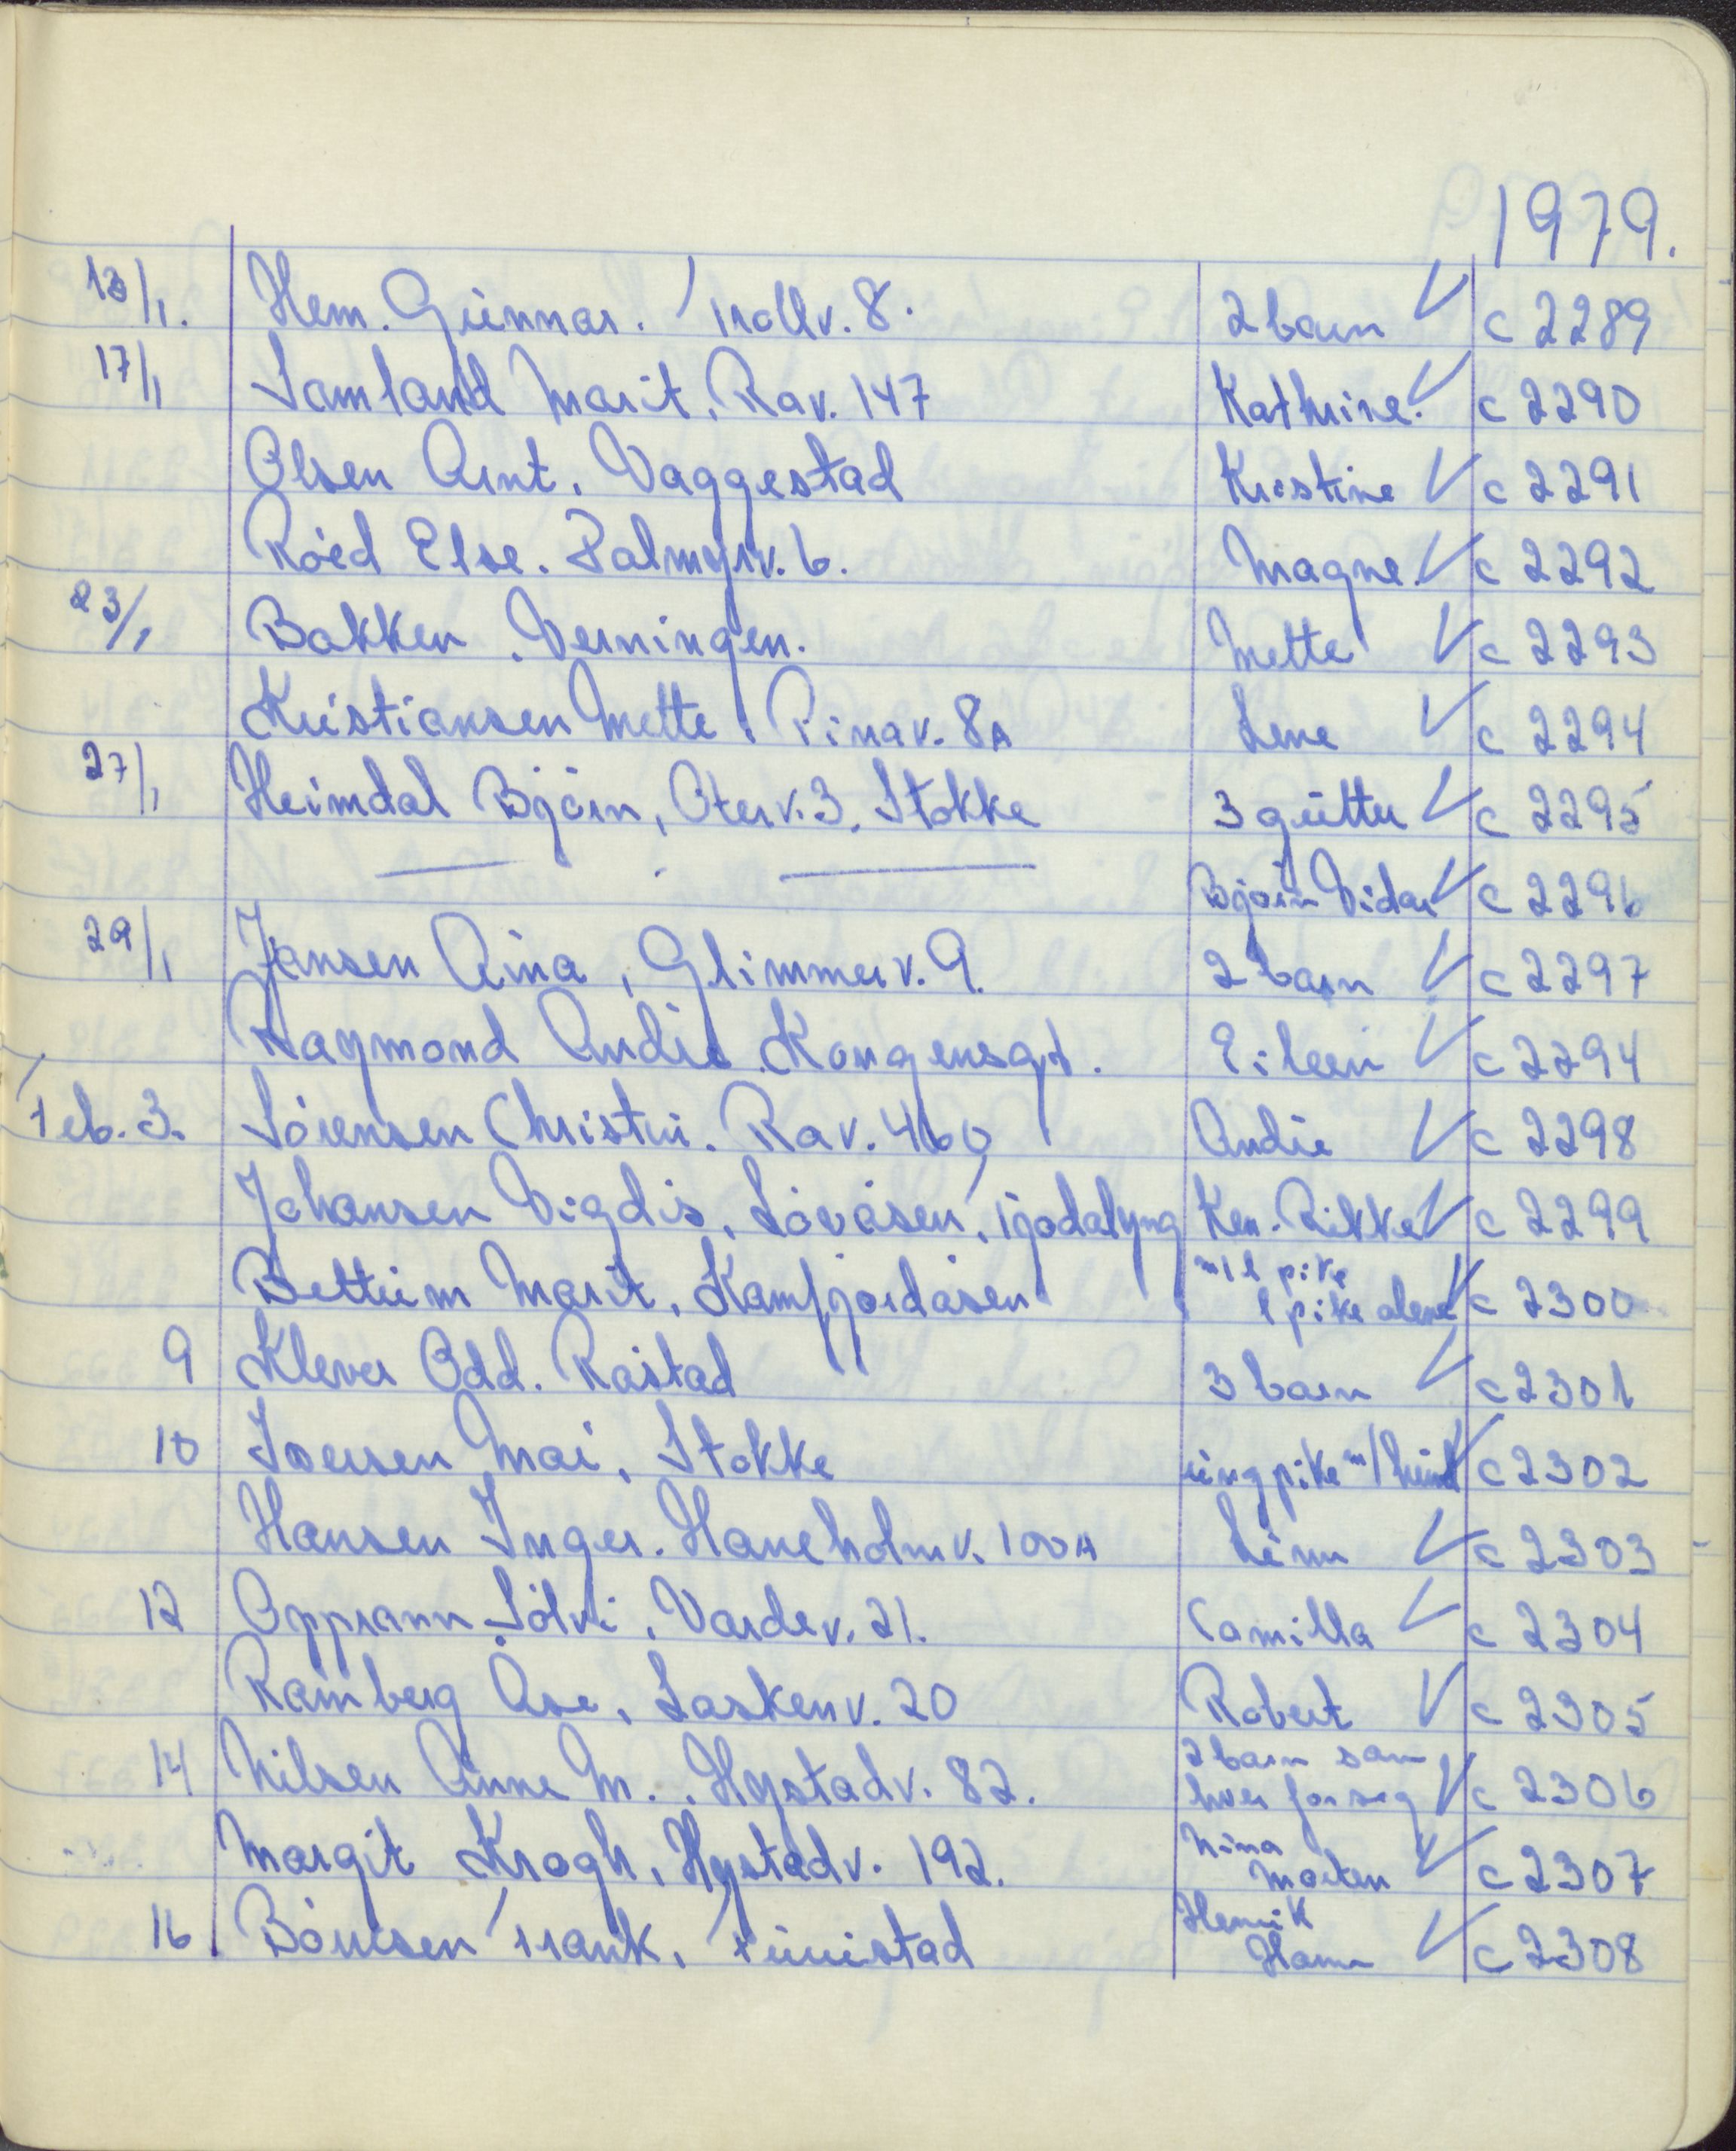 1979.
13/1. Hem. Gunnar. Trollv. 8. 2 barn V c 2289
17/1 Samland Marit, Rav. 147 Kathrine. V c 2290
Olsen Arnt, Vaggestad Kristine V c 2291
Röed Else. Palmyrv. 6. Magne. V c 2292
23/1 Bakken, Verningen. Mette V c 2293
Kristiansen Mette, Rinav. 8A Lene V c 2294
27/1 Heimdal Björn, Oterv. 3, Stokke 3 gutter V c 2295
— " — Björn Vidar V c 2296
29/1 Jansen Aina, Glimmerv. 9. 2 barn V c 2297
Raymond André Kongensgt. Eileen V c 2294
Feb. 3. Sörensen Christin. Rav. 460 V c 2298
Johansen Vigdis, Lövåsen, Tjodalyng Ken. Rikke V c 2299
Bettum Marit, Kamfjordåsen m/1 pike 1 pike alene V c 2300
9 Klever Odd. Råstad 3 barn V c 2301
10 Iversen Mai, Stokke ung pike m/hund V c 2302
Hansen Inger. Haneholmv. 100A V c 2303
12 Opprann Sölvi, Vardev. 21. Camilla V c 2304
Ramberg Åse, Laskenv. 20 Robert V c 2305
14 Nilsen Anne M., Hystadv. 82. 2 barn sam hver for seg V c 2306
Margit Krogh, Hystadv. 192. Nina Morten V c 2307
16 Börresen Frank, Furustad Henrik V c 2308